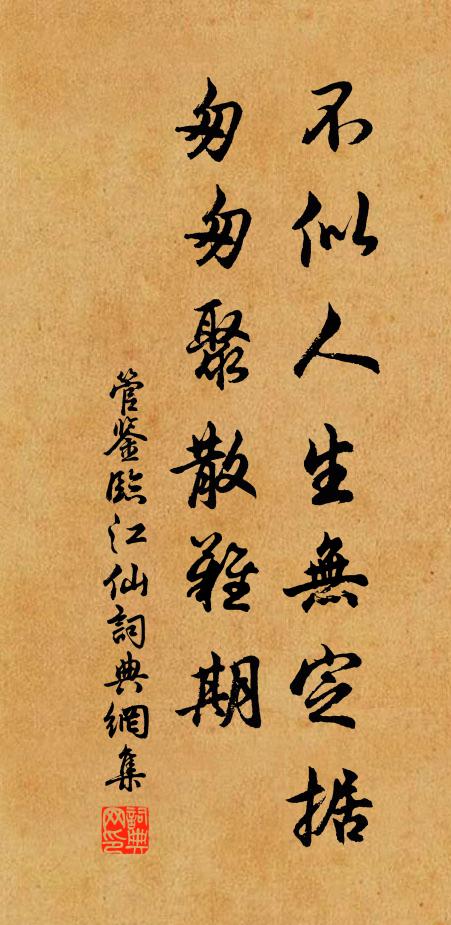 不似人生無定据
匆匆聚散難期
管鉴臨江仙詞典網集
詞典网印